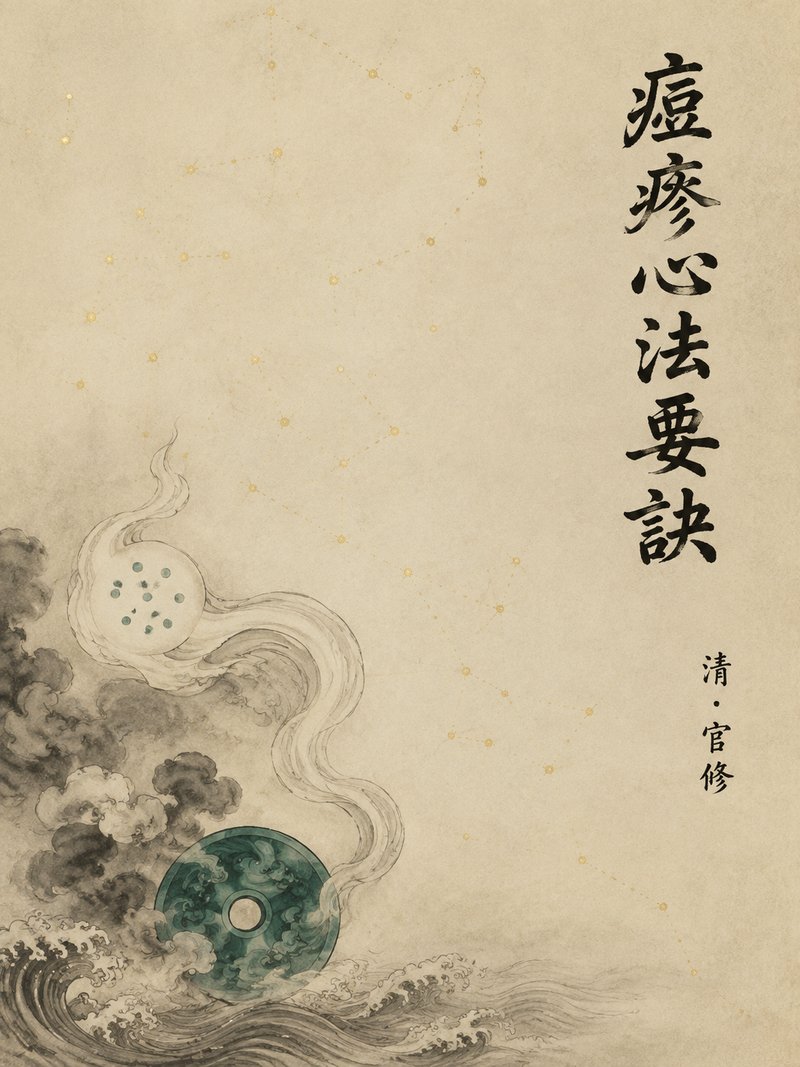 痘疹心法要訣
清·官修